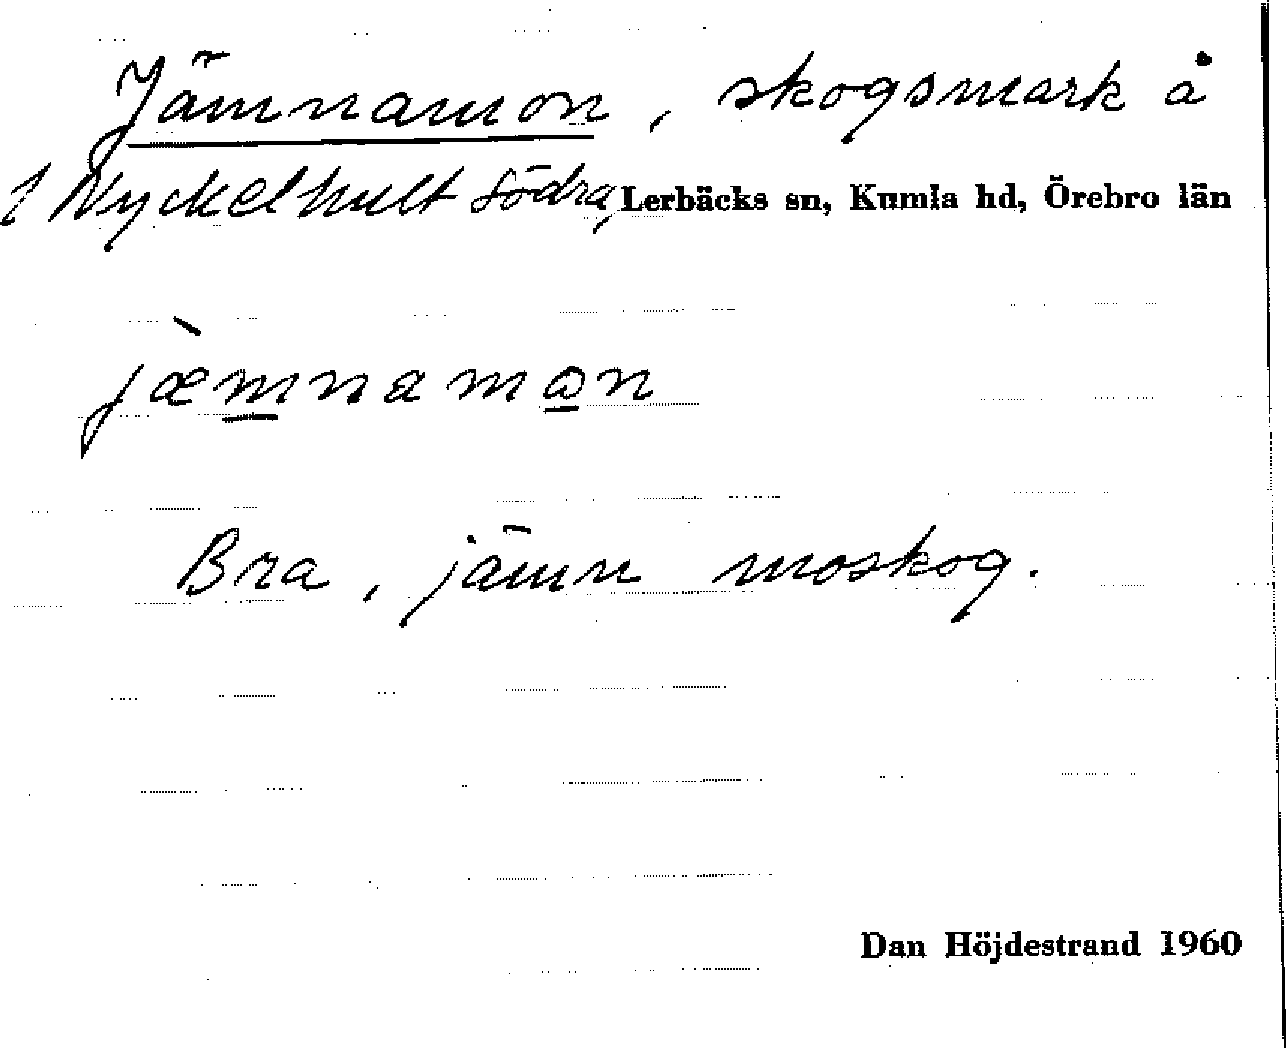 Jämnamon, skogsmark å
1 Nyckelhult södra, Lerbäcks sn, Kumla hd, Örebro län
jæ̀mnamon
Bra, jämn moskog.
Dan Höjdestrand 1960